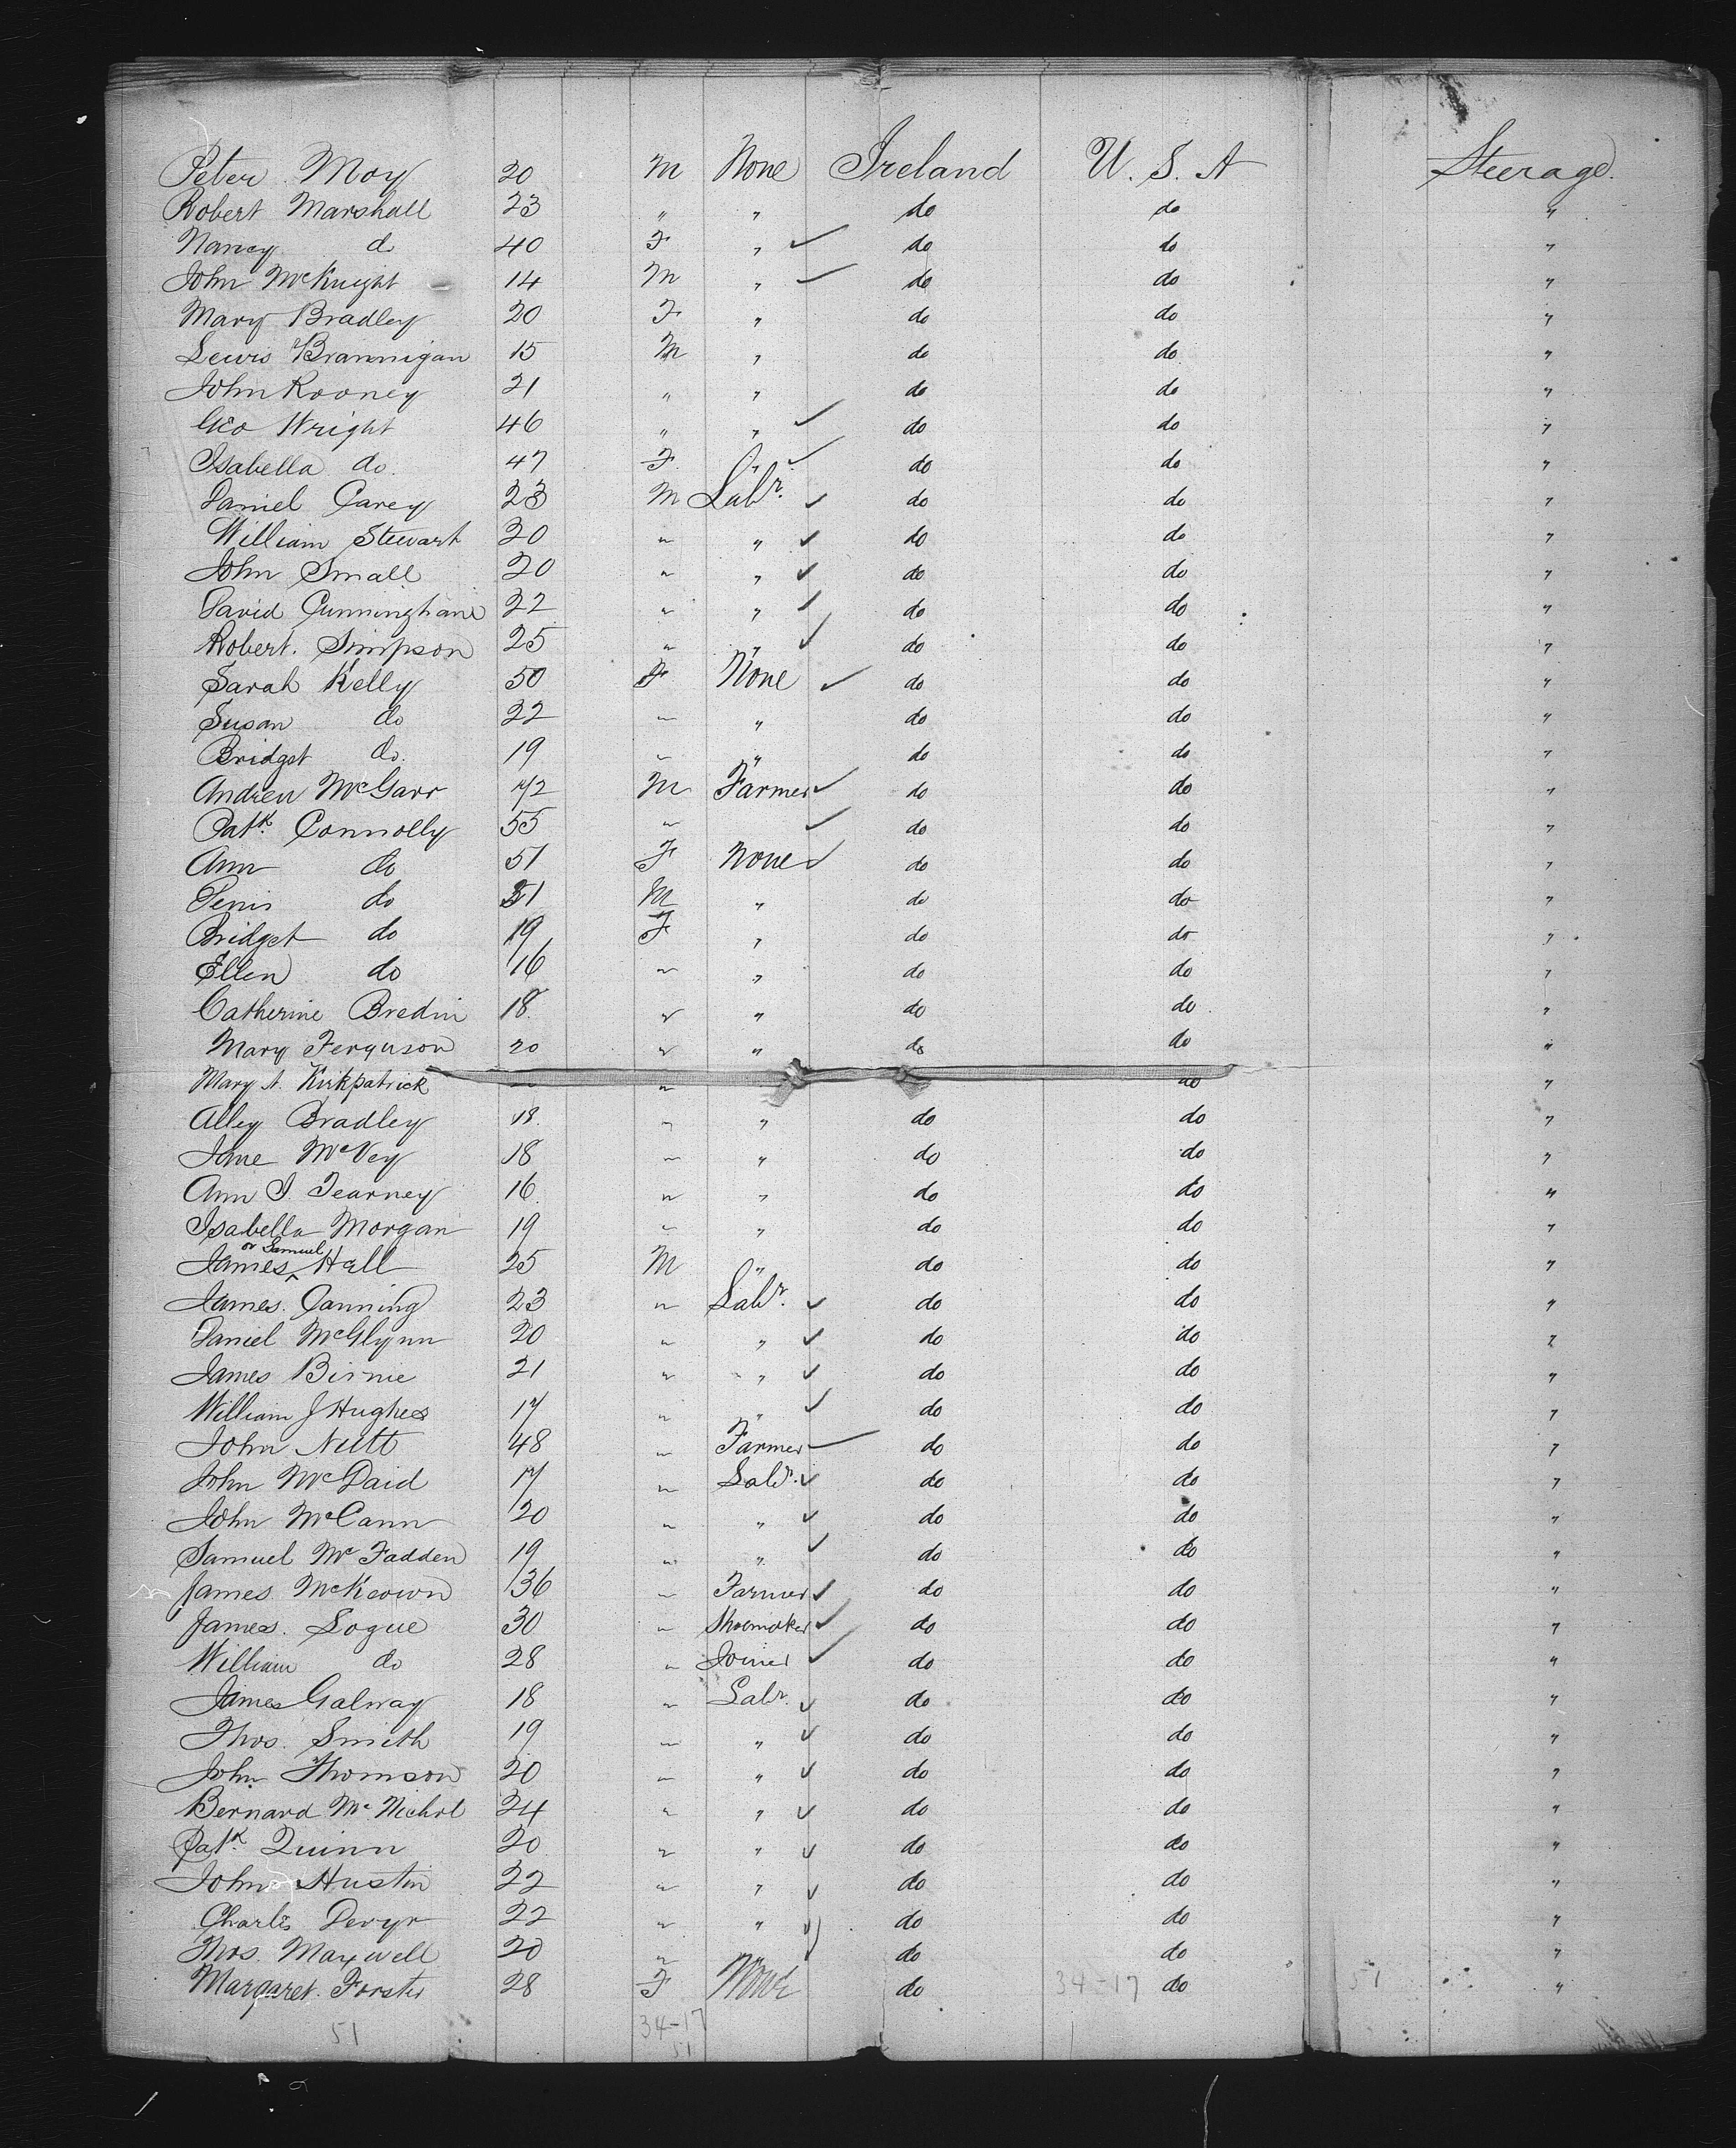 Peter Moy 20 M None Ireland U. S. A Steerage.
Robert Marshall 23 " " do do "
Nancy do 40 F " do do "
John McKnight 14 M " do do "
Mary Bradley 20 F " do do "
Lewis Brannigan 15 M " do do "
John Rooney 21 " " do do "
Geo Wright 46 " " do do "
Isabella do. 47 F " do do "
Daniel Carey 23 M Labr. do do "
William Stewart 20 " " do do "
John Small 20 " " do do "
David Cunningham 22 " " do do "
Robert. Simpson 25 " " do do "
Sarah Kelly 50 F None do do "
Susan do 22 " " do do "
Bridget do. 19 " " do do "
Andrew McGarr 42 M Farmer do do "
Patk. Connolly 55 " do do "
Ann do 51 F None do do "
Denis do 51 M " do do "
Bridget do 19 F " do do "
Ellen do 16 " " do do "
Catherine Bredin 18. " " do do "
Mary Ferguson 20 " " do do "
Mary A. Kirkpatrick " do "
Alley Bradley 18. " " do do "
Jane McVey 18 " " do do "
Ann J. Tearney 16. " " do do "
Isabella Morgan 19 " " do do "
James or Samuel Hall 25 M " do do "
James. Canning 23 " Labr. do do "
Daniel McGlynn 20 " " do do "
James Birnie 21 " " do do "
William J Hughes 17 " " do do "
John Nutt 48 " Farmer do do "
John McDaid 17 " Labr. do do "
John McCann 20 " " do do "
Samuel McFadden 19 " " do do "
James McKeown 36 " Farmer do do "
James. Logue 30 " Shoemaker do do "
William do 28 " Joiner do do "
James Galway 18 " Labr. do do "
Thos. Smith 19 " " do do "
John Thomson 20 " " do do "
Bernard McNichol 24 " " do do "
Patk. Quinn 20 " " do do "
John Hustin 22 " " do do "
Charles Devyr 22 " " do do "
Thos. Maxwell 20 " " do do "
Margaret. Forster 28 F None do 34-17 do 51 "
51 34-17
51